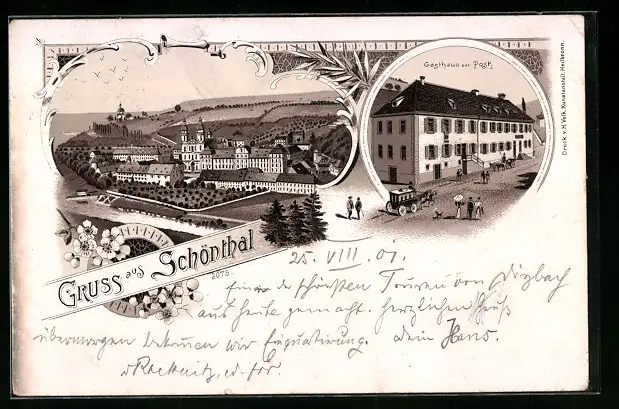 Gasthaus zur Post.
Druck v. H. Volk, Kunstanstalt, Heilbronn
Gruss aus Schönthal
5073.
25. VIII. 01.
Eine der schönsten Touren von Dörzbach
aus heute gemacht. Herzlichen Gruß
übermorgen bekommen wir Einquartierung. Dein Hans.